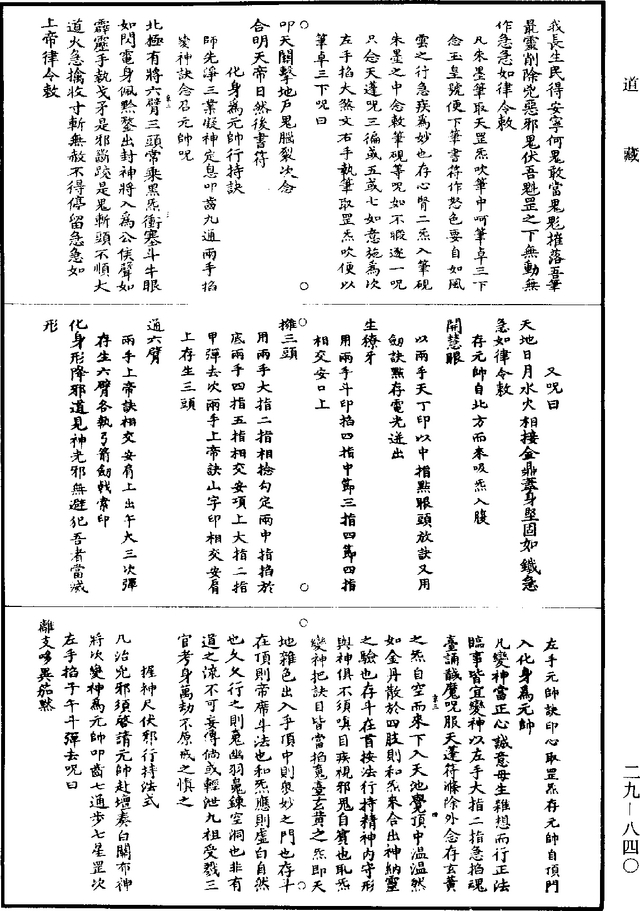 道藏
我長生民得安寧何鬼敢當鬼髟摧落吾筆
最靈削除兇惡邪鬼伏吾魁罡之下無動無
作急急如律令敕
凡朱墨筆取天罡炁吹筆中呵筆卓三下
念玉皇號便下筆書符作怒色要自如風
雲之行急疾為妙也存心腎二炁入筆硯
朱墨之中念敕筆硯等呪如不暇逐一呪
只念天蓬呪三徧或五或七如意施為次
左手掐大煞文右手執筆取罡炁吹便以
筆卓三下呪曰
叩天關擊地戶鬼腦裂次念
合明天帝日然後書符
化身為元帥行持訣
師先淨三業凝神定息叩齒九通兩手掐
變神訣念召元帥呪
北極有將六臂三頭常乘黑炁衝塞斗牛眼
如閃電身佩黙鍪出封神將入為公侯聲如
霹靂手執戈矛是邪斷跤是鬼斬頭不順大
道火急擒收寸斬無赦不得停留急急如
上帝律令敕
又呪曰
天地日月水火相接金鼎蓋身堅固如鐵急
急如律令敕
存元帥自北方而來吸炁入腹
開慧眼
以兩手天丁印以中指點眼頭放訣又用
劒訣點存電光迸出
生獠牙
用兩手斗印掐四指中節三指四節四指
相交安口上
擁三頭
用兩手大指二指相捻勾定兩中指掐於
底兩手四指五指相交安項上大指二指
甲彈去次兩手上帝訣山字印相交安肩
上存生三頭
通六臂
兩手上帝訣相交安肩上出午大三次彈
存生六臂各執弓箭劒戟索印
化身形降邪道見神光邪無避犯吾者當滅
形
左手元帥訣印心取罡炁存元帥自頂門
入化身為元帥
凡變神當正心誠意毋生雜想而行正法
臨事皆宜變神以左手大指二指急掐魂
臺誦馘魔呪服天蓬符滌除外念存玄黃
之炁自空而來下入天池覺頂中溫溫然
如金丹散於四肢則和炁來合出神納靈
之驗也存斗在首按法行持精神內守形
與神俱不須嗔目疾視邪鬼自賓也取炁
變神把訣目皆當掐魂臺玄黃之炁即天
地雜色出入乎頂中則衆妙之門也存斗
在頂則帝席斗法也和炁應則虛白自然
也久久行之則鬼幽羽曵鍊空洞也非有
道之流不可妄傳倘或輕泄九祖受戮三
官考身萬劫不原戒之慎之
握神尺伏邪行持法式
凡治兇邪須啓請元帥赴壇奏白關布神
將次變神為元帥叩齒七通步七星罡次
左手掐子午斗彈去呪曰
離支哆異茄黙
二九—八四〇